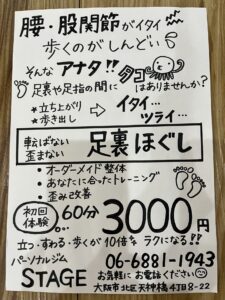 腰・股関節がイタイ
歩くのがしんどい
そんなアナタ!! タコ
足裏や足指の間に はありませんか?
★立ち上がり
★歩き出し
イタイ…
ツライ…
転ばない
歪まない
足裏ほぐし
・オーダーメイド整体
・あなたに合ったトレーニング
・歪み改善
初回
体験
60分 3000円
立つ・すわる・歩くが10倍ラクになる!!
パーソナルジム
STAGE
06-6881-1943
お気軽にお電話ください
大阪市北区天神橋4丁目8-22